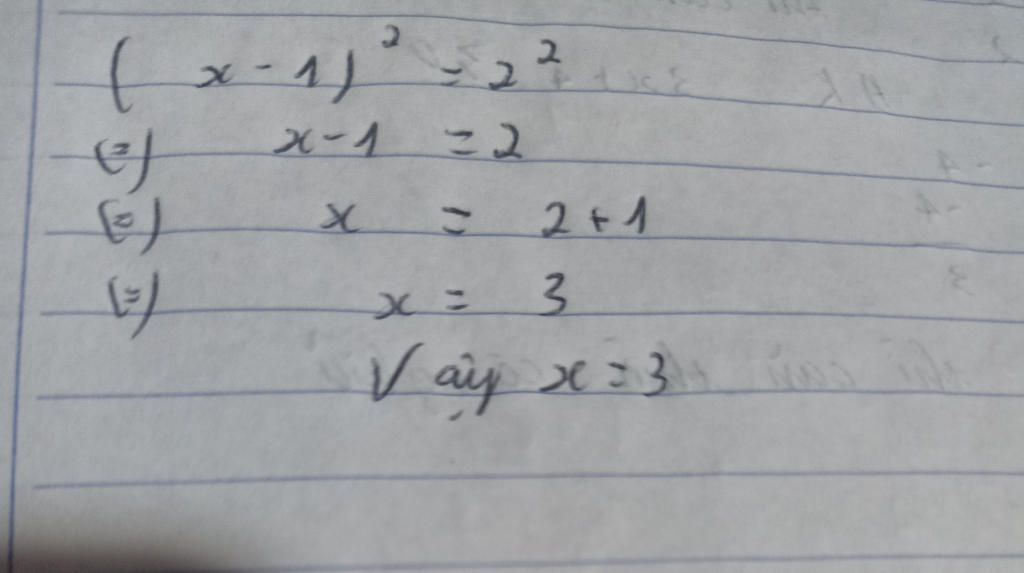 ( x - 1 )² = 2²
(=) x - 1 = 2
(=) x = 2 + 1
(=) x = 3
Vậy x = 3